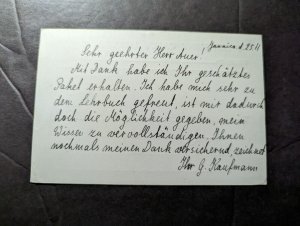 Jamaica d. 25/1
Sehr geehrter Herr Auer,
Mit Dank habe ich Ihr geschätztes
Paket erhalten. Ich habe mich sehr zu
dem Lehrbuch gefreut, ist mir dadurch
doch die Möglichkeit gegeben, mein
Wissen zu vervollständigen. Ihnen
nochmals meinen Dank versichernd, zeichnet
Ihr G. Kaufmann